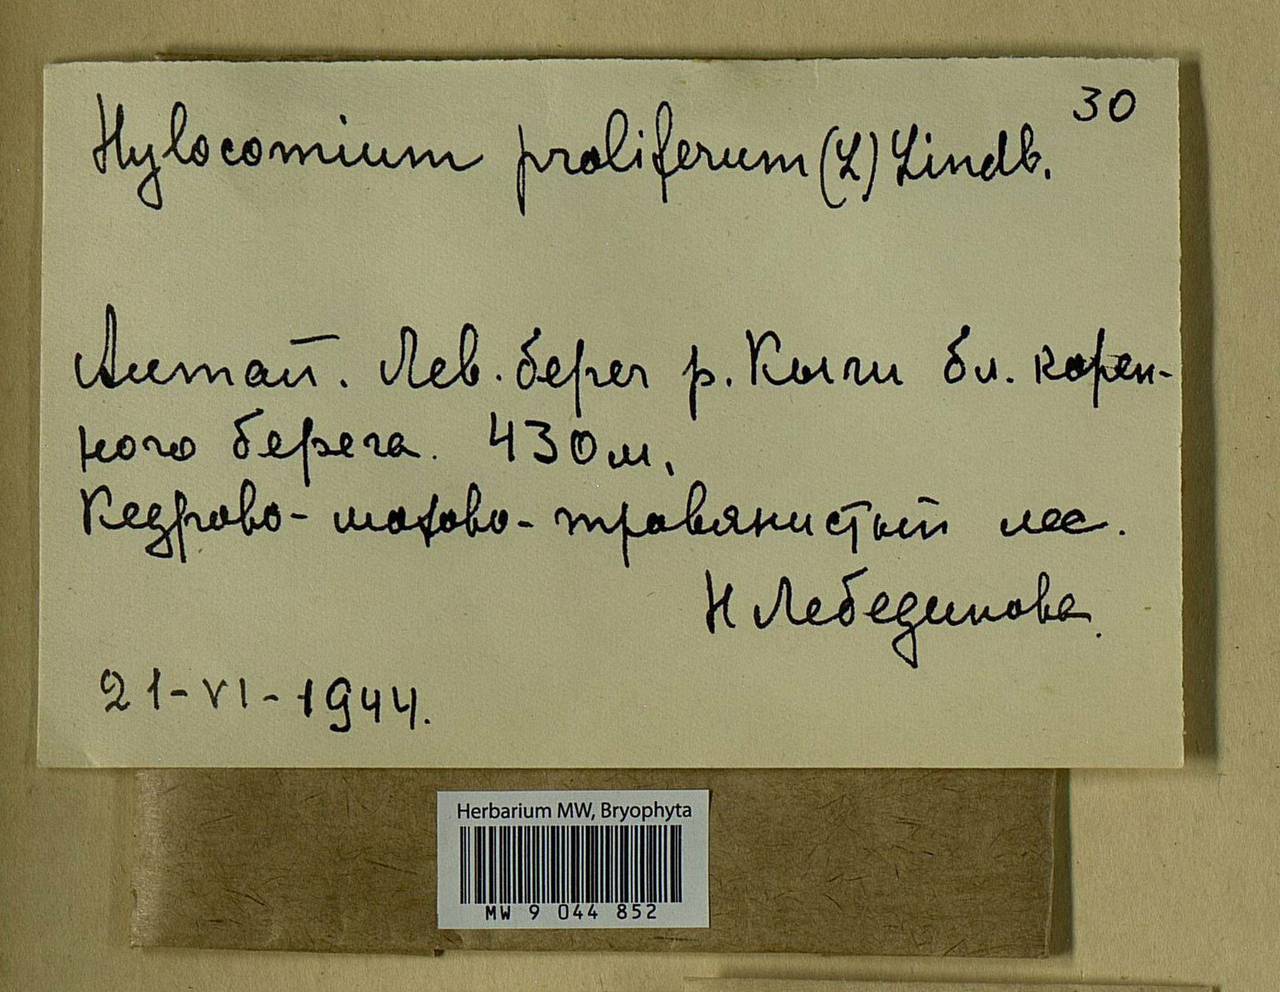 30
Hylocomium proliferum (L) Lindb.
Алтай. Лев. берег р. Кыги бл. корен-
ного берега. 430 м.
Кедрово-мохово-травянистый лес.
Н Лебединова.
21-VI-1944.
Herbarium MW, Bryophyta
MW 9 044 852